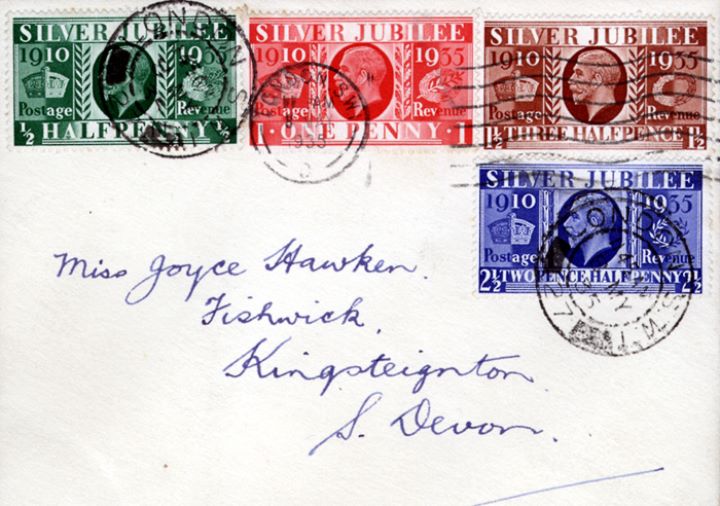 SILVER JUBILEE
1910 1935
Postage Revenue
½ HALFPENNY ½
SILVER JUBILEE
1910 1935
Postage Revenue
1 · ONE PENNY · 1
SILVER JUBILEE
1910 1935
Postage Revenue
1½ THREE HALFPENCE 1½
SILVER JUBILEE
1910 1935
Postage Revenue
2½ TWOPENCE HALFPENNY 2½
LONDON
LONDON. S.W.
1935
LONDON S.W.1
MY
Miss Joyce Hawken.
Fishwick,
Kingsteignton
S. Devon.